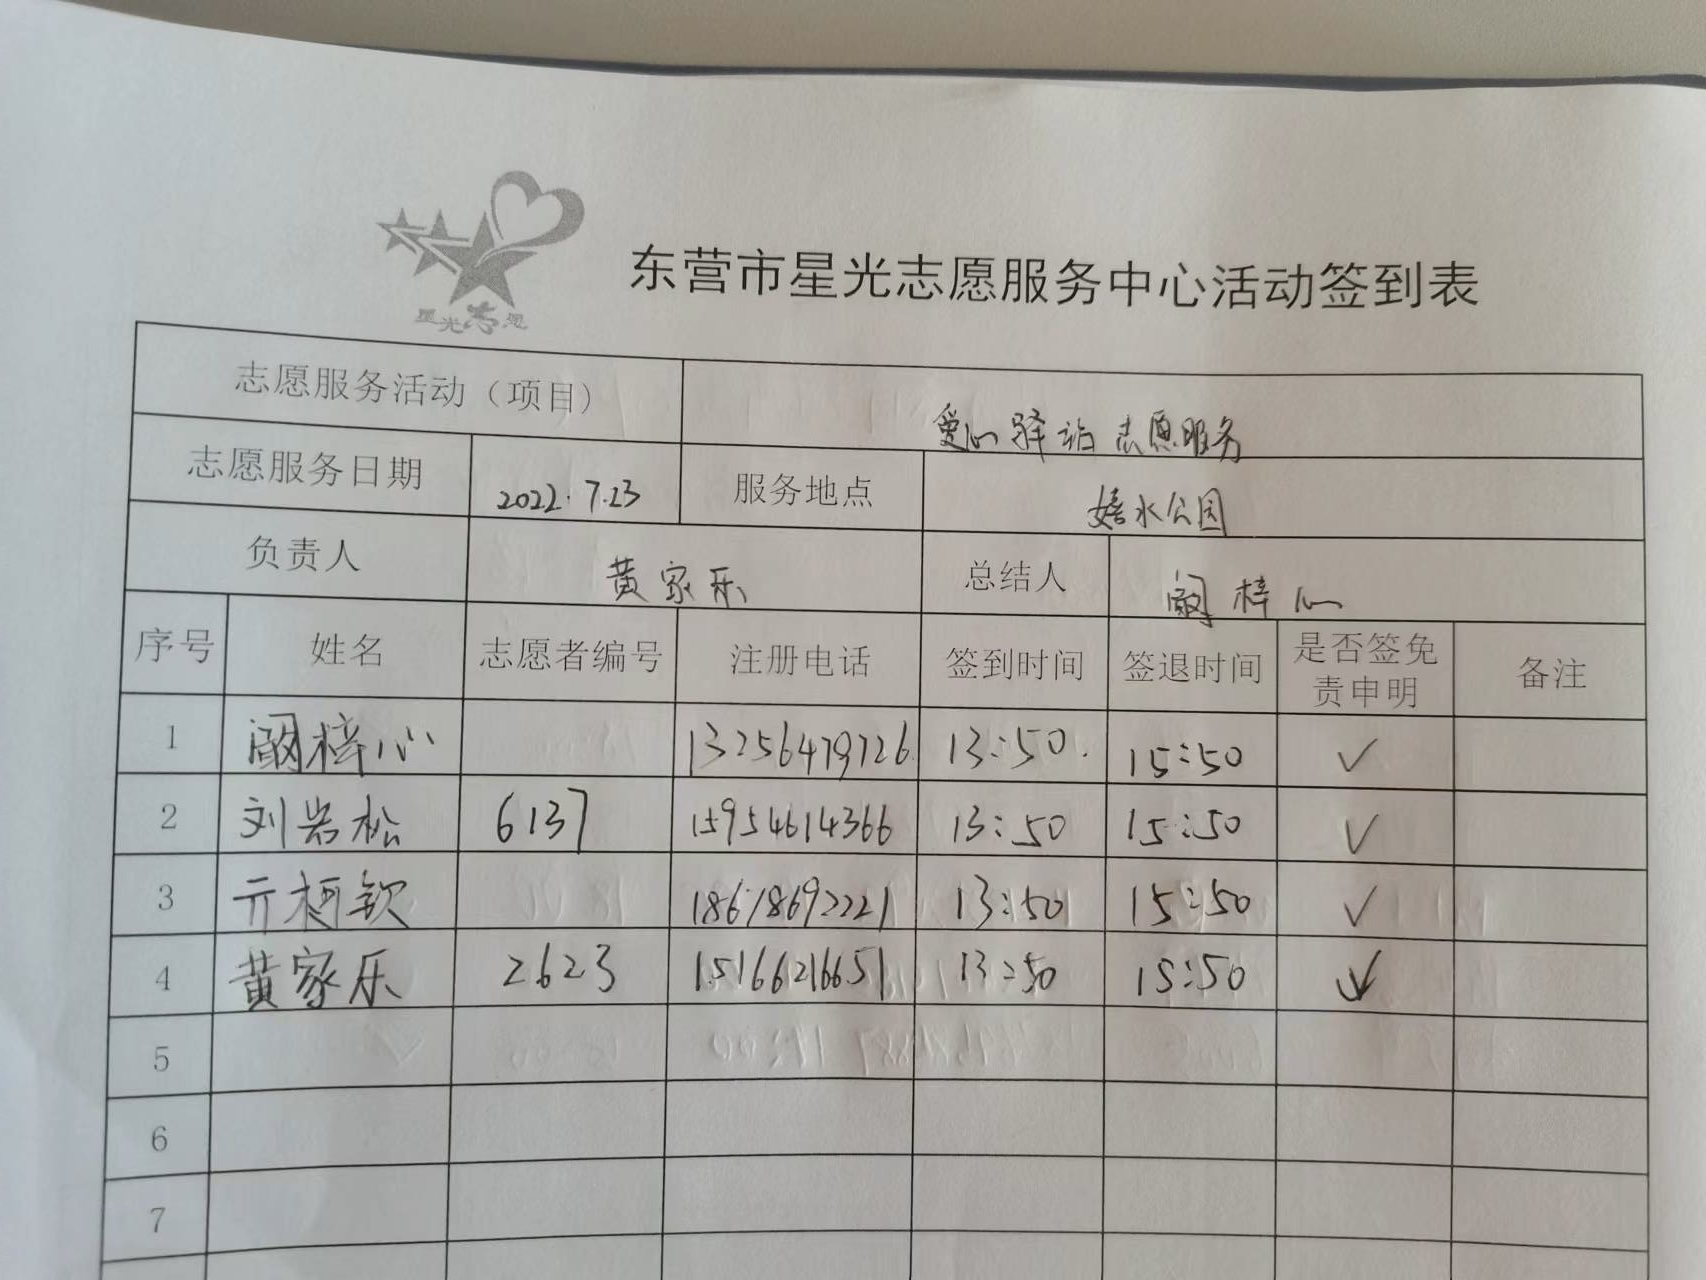 星光志愿
东营市星光志愿服务中心活动签到表
志愿服务活动（项目） 爱心驿站志愿服务
志愿服务日期 2022.7.23 服务地点 嬉水公园
负责人 黄家乐 总结人 阚梓心
序号 姓名 志愿者编号 注册电话 签到时间 签退时间 是否签免责申明 备注
1 阚梓心 13256479726 13:50. 15:50 ✓
2 刘岩松 6137 15954614366 13:50 15:50 ✓
3 亓柯钦 18678692221 13:50 15:50 ✓
4 黄家乐 2623 15166216651 13:50 15:50 ✓
5
6
7